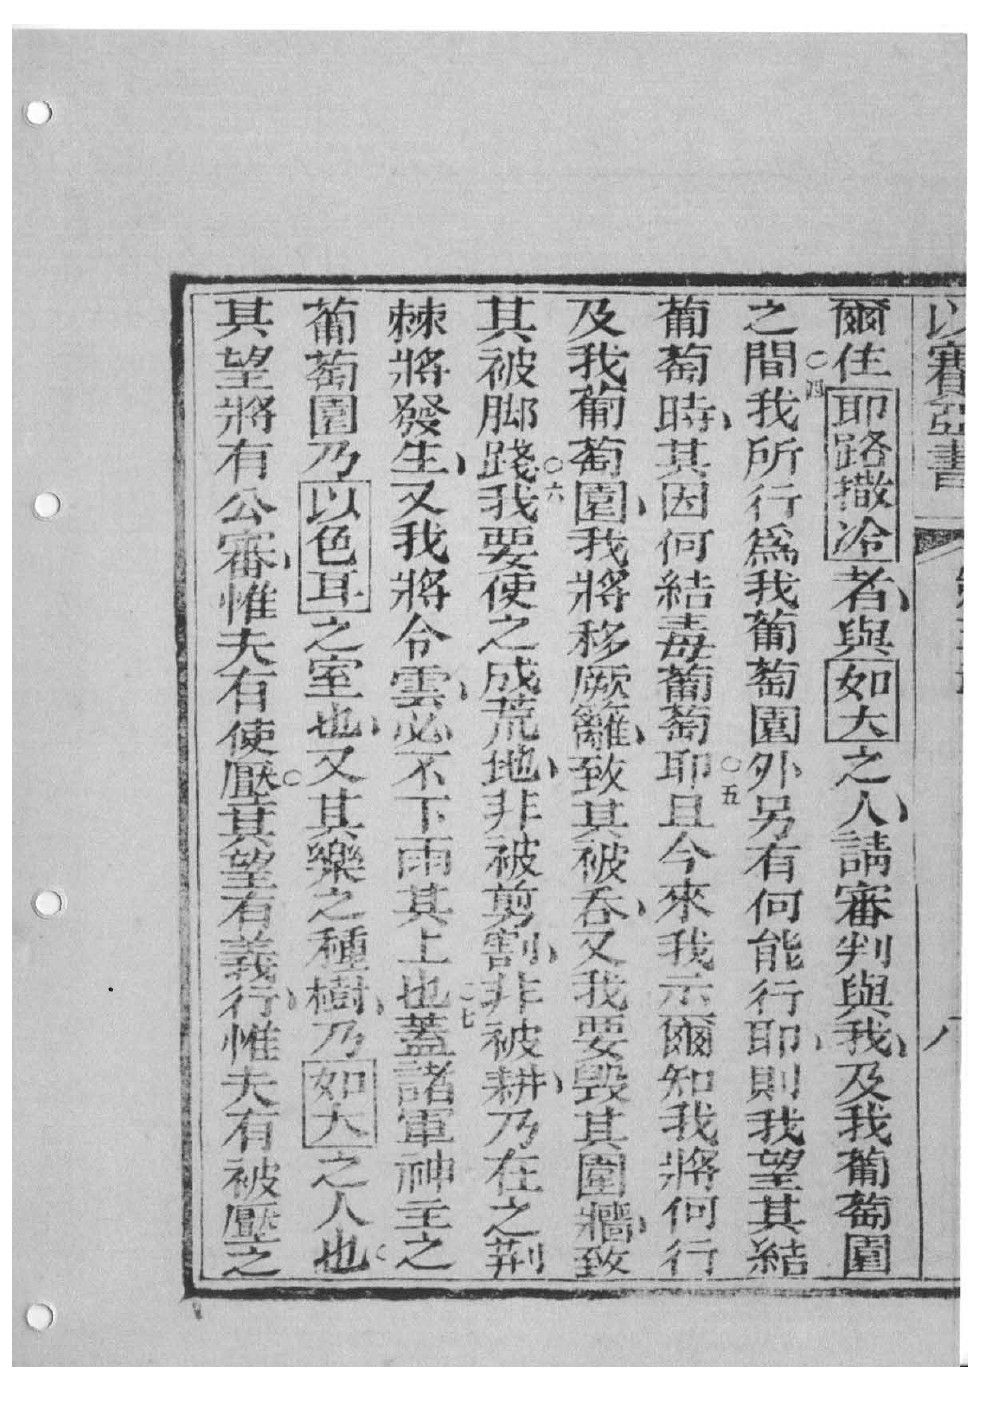 以賽亞書
爾住耶路撒冷者與如大之人請審判與我及我葡萄園
之間〇四我所行為我葡萄園外另有何能行耶則我望其結
葡萄時其因何結毒葡萄耶〇五且今來我示爾知我將何行
及我葡萄園我將移厥籬致其被吞又我要毀其圍牆致
其被脚踐〇六我要使之成荒地非被剪割非被耕乃在之荆
棘將發生又我將令雲必不下雨其上也〇七蓋諸軍神主之
葡萄園乃以色耳之室也又其樂之種樹乃如大之人也〇
其望將有公審惟夫有使壓〇其望有義行惟夫有被壓之